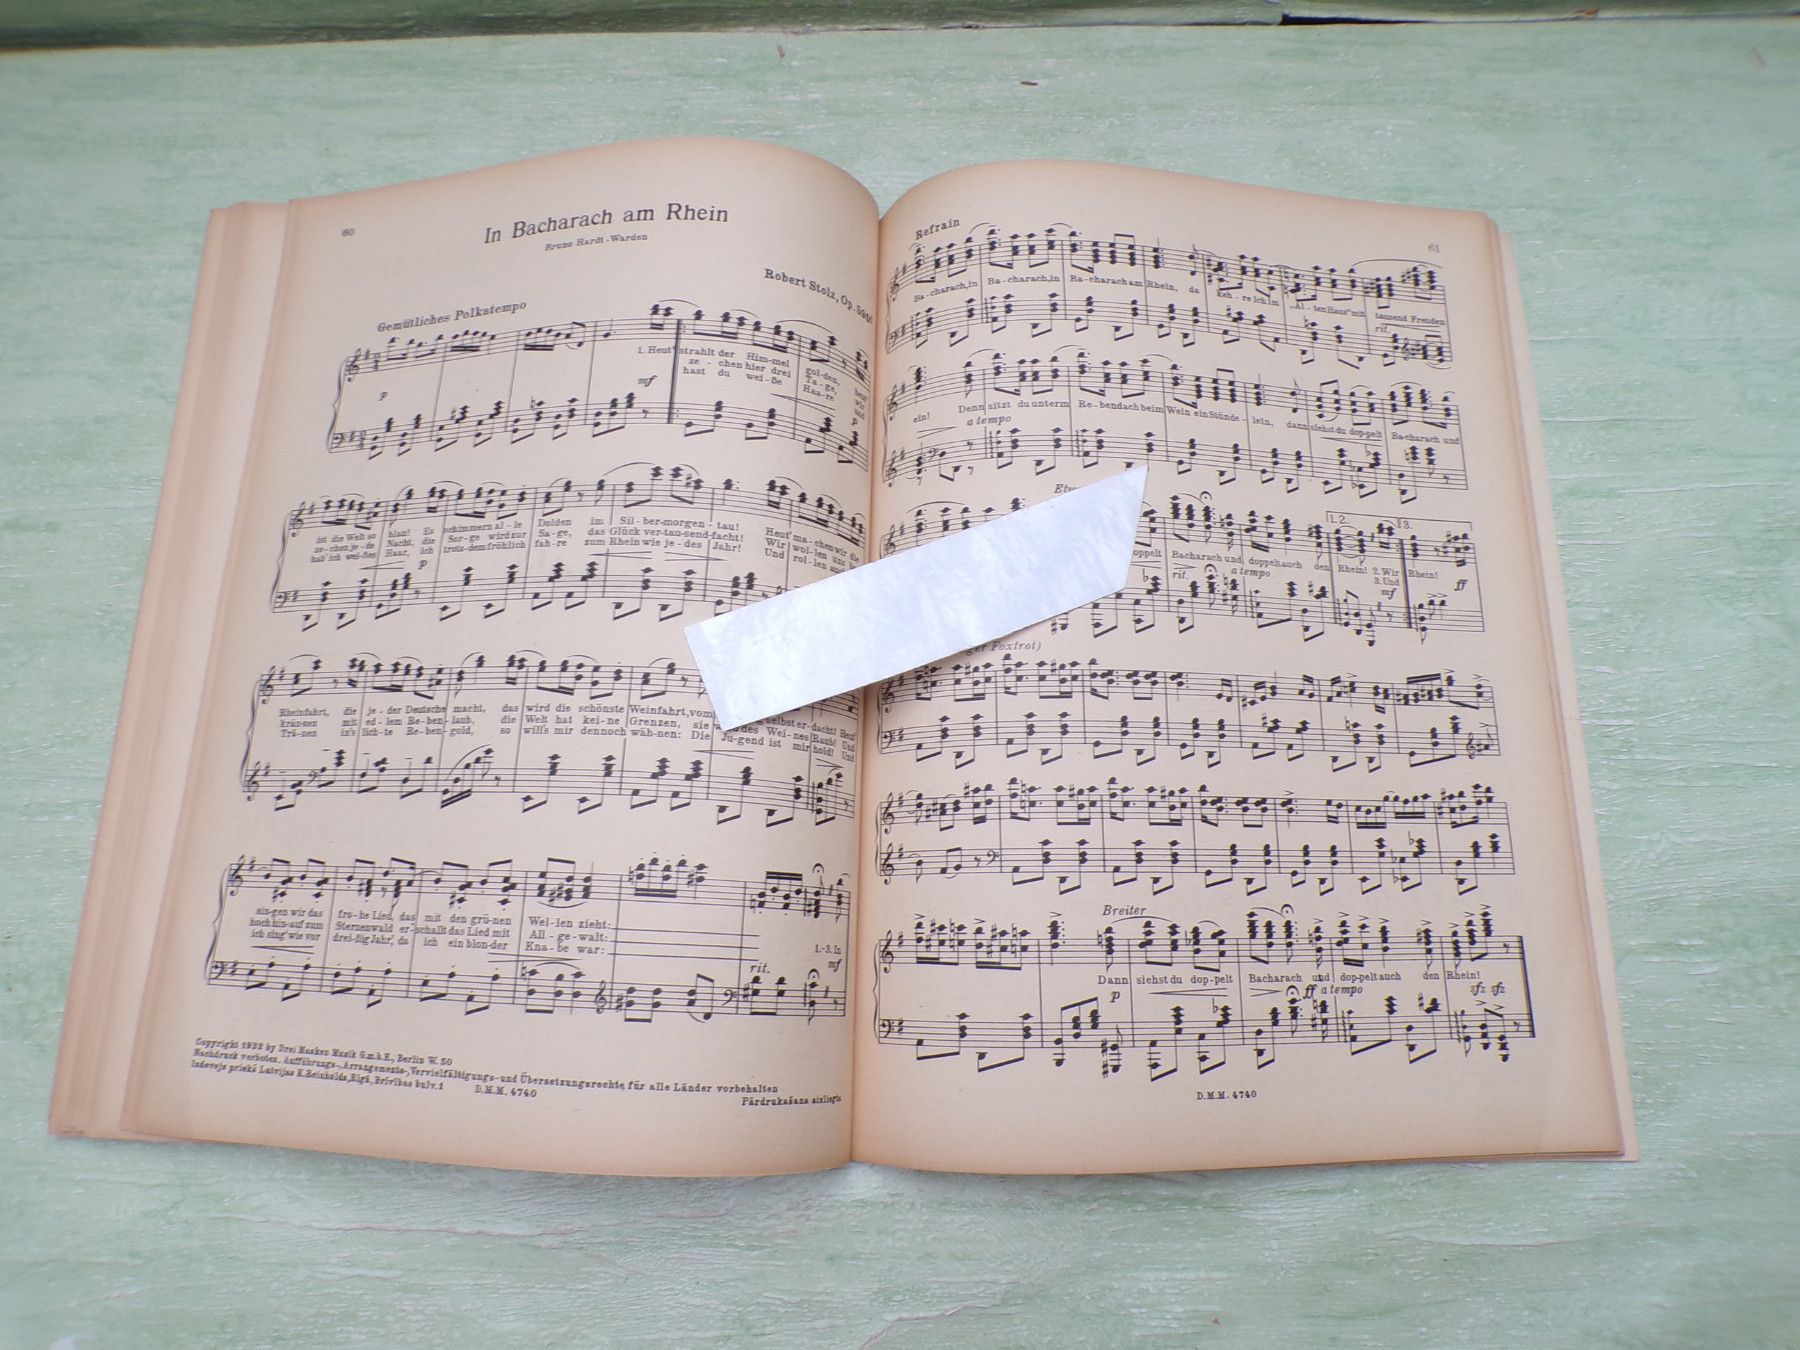 60
In Bacharach am Rhein
Bruno Hardt-Warden
Robert Stolz, Op.
Gemütliches Polkatempo
p
mf
1. Heut' strahlt der Him-mel gol-den, heut'
ze - chen hier drei Ta-ge, wir
hast du wei-ße Haare und
p
ist die Welt so blau! Es schimmern al-le Dolden im Sil-ber-morgen-tau! Heut' ma-chen wir die
ze-chen je-de Nacht, die Sor-ge wird zur Sa-ge, das Glück ver-tau-send-facht! Wir wol-len uns
hab' ich wei-ßes Haar, ich trotz-dem fröhlich fah-re zum Rhein wie je-des Jahr! Und rol-len
p
Rheinfahrt, die je-der Deutsche macht, das wird die schönste Weinfahrt, vom selbst er-dacht! Heut'
krän-zen mit ed-lem Re-ben-laub, die Welt hat kei-ne Grenzen, sie des Wei-nes Raub! Und
Trä-nen in's lich-te Re-ben-gold, so will's mir dennoch wäh-nen: Die Ju-gend ist mir hold! Und
sin-gen wir das fro-he Lied, das mit den grü-nen Wel-len zieht:
hoch hin-auf zum Sternenwald er-schallt das Lied mit All-ge-walt:
ich sing' wie vor drei-ßig Jahr', da ich ein blon-der Kna-be war:
1.-3. In
rit.
mf
Copyright 1932 by Drei Masken Musik G.m.b.H., Berlin W. 50
Nachdruck verboten. Aufführungs-, Arrangements-, Vervielfältigungs- und Übersetzungsrechte für alle Länder vorbehalten
Izdevejs priekš Latvijas K. Reinholds, Rīgā, Brīvības bulv. 1
D.M.M. 4740
Pārdrukašana aizliegta
61
Refrain
Ba-charach, in Ba-charach, in Ba-charach am Rhein, da keh-re ich im „Al-ten Haus" mit tausend Freuden
rit.
ein! Denn sitzt du unterm Re-bendach beim Wein ein Stünde-lein, dann siehst du dop-pelt Ba-charach und
a tempo
1.2.
3.
doppelt Bacharach und doppelt auch den Rhein! 2. Wir Rhein!
3. Und
rit.
a tempo
mf
ff
Foxtrot)
Breiter
Dann siehst du dop-pelt Bacharach und dop-pelt auch den Rhein!
p
ff a tempo
sfz sfz
D.M.M. 4740